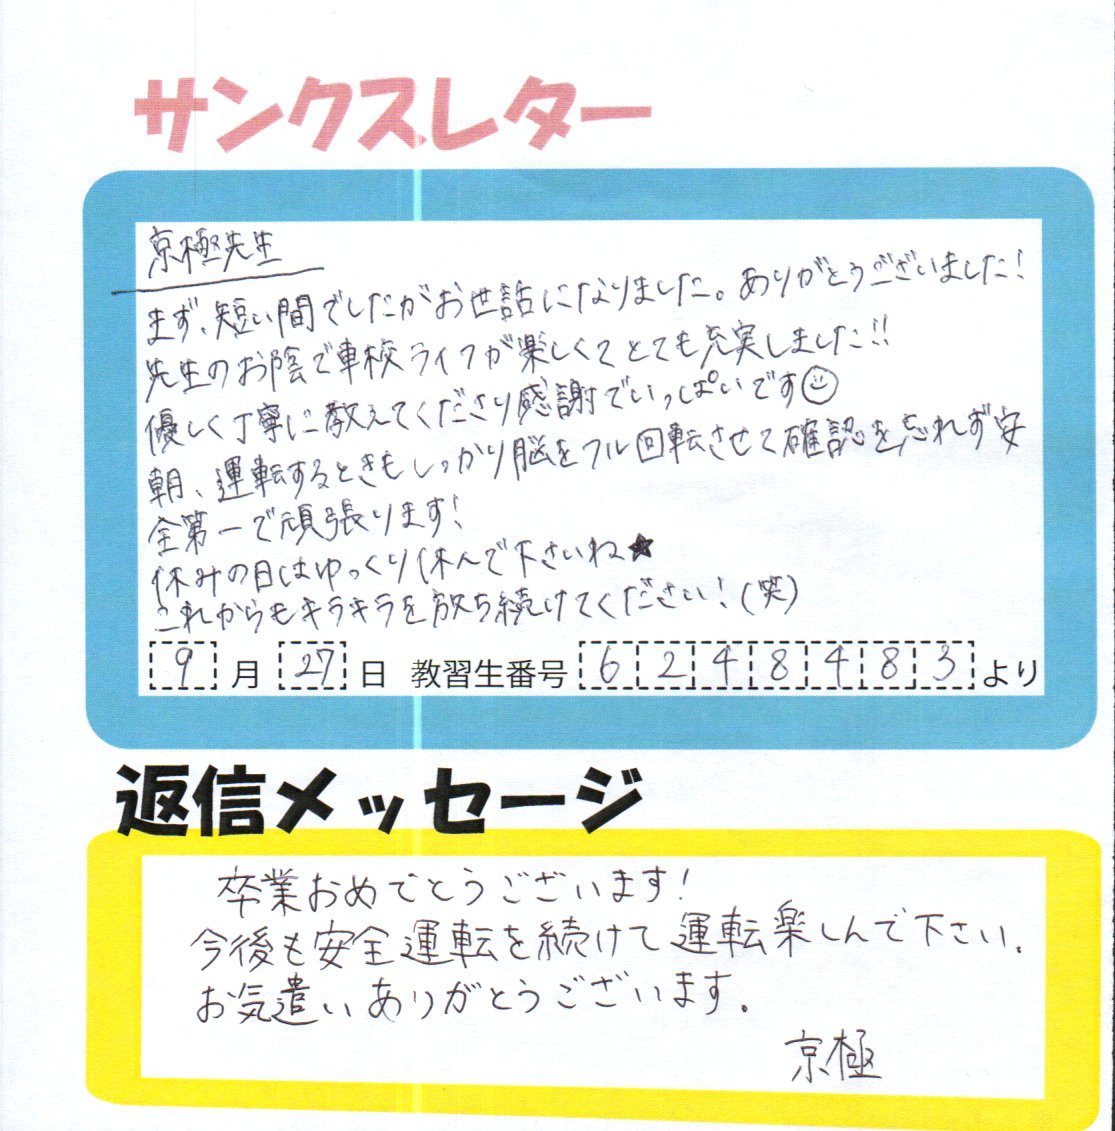 サンクスレター
京極先生
まず、短い間でしたがお世話になりました。ありがとうございました!
先生のお陰で車校ライフが楽しくてとても充実しました!!
優しく丁寧に教えてくださり感謝でいっぱいです☺
朝、運転するときもしっかり脳をフル回転させて確認を忘れず安
全第一で頑張ります!
休みの日はゆっくり休んで下さいね★
これからもキラキラを放ち続けてください!(笑)
9月27日 教習生番号 6248483より
返信メッセージ
卒業おめでとうございます!
今後も安全運転を続けて運転楽しんで下さい.
お気遣いありがとうございます.
京極